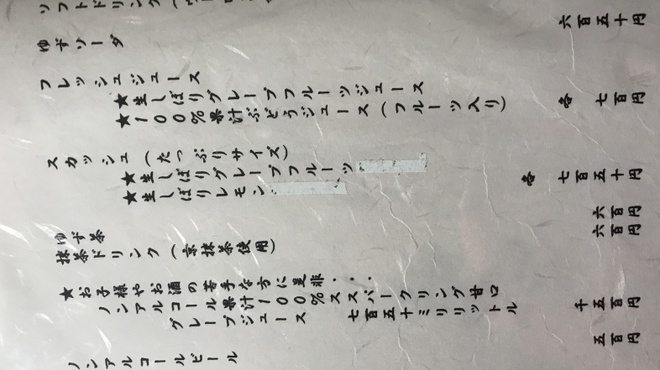 ソフトドリンク
ゆずソーダ 六百五十円
フレッシュジュース
★生しぼりグレープフルーツジュース
★100%果汁ぶどうジュース（フルーツ入り） 各 七百円
スカッシュ（たっぷりサイズ）
★生しぼりグレープフルーツ
★生しぼりレモン 各 七百五十円
ゆず茶 六百円
抹茶ドリンク（京抹茶使用） 六百円
★お子様やお酒の苦手な方に是非・・・
ノンアルコール果汁100%ススパークリング甘口
グレープジュース 七百五十ミリリットル 千五百円
ノンアルコールビール 五百円